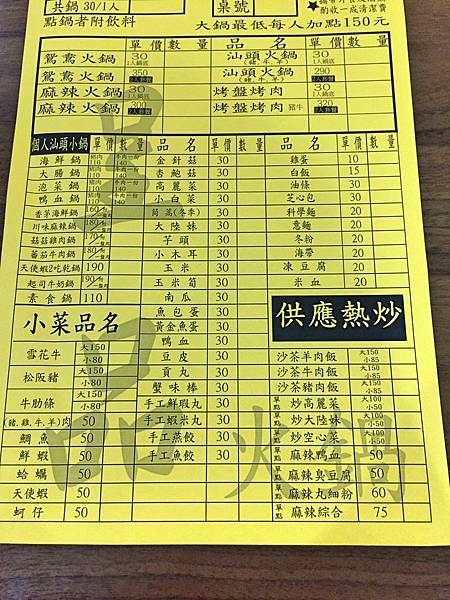 共鍋 30/1人 桌號
酌收一成清潔費
點鍋者附飲料 大鍋最低每人加點150元
單價 數量 品名 單價 數量
鴛鴦火鍋 30 1人鍋底 汕頭火鍋 (豬,牛,羊) 30 1人鍋底
鴛鴦火鍋 350 2人套餐 汕頭火鍋 (豬,牛,羊) 290 2人套餐
麻辣火鍋 30 1人鍋底 烤盤烤肉 30 1人鍋底
麻辣火鍋 300 2人套餐 烤盤烤肉 豬牛 320 2人套餐
個人汕頭小鍋 單價 數量 品名 單價 數量 品名 單價 數量
海鮮鍋 金針菇 30 雞蛋 10
大腸鍋 杏鮑菇 30 白飯 15
泡菜鍋 高麗菜 30 油條 30
鴨血鍋 小白菜 30 芝心包 30
香茅海鮮鍋 茼蒿(冬季) 30 科學麵 20
川味麻辣鍋 大陸妹 30 意麵 20
菇菇雞肉鍋 芋頭 30 冬粉 20
蕃茄牛肉鍋 小木耳 30 海帶 20
天使蝦2吃乾鍋 190 玉米 30 凍豆腐 20
起司牛奶鍋 190 玉米筍 30 米血 20
素食鍋 110 南瓜 30
小菜品名 魚包蛋 30 供應熱炒
黃金魚蛋 30
鴨血 30
雪花牛 大150 小80 豆皮 30 沙茶羊肉飯 大150 小85
松阪豬 大150 小80 貢丸 30 沙茶牛肉飯 大150 小85
蟹味棒 30 沙茶豬肉飯 大150 小85
牛肋條 大150 小80 手工鮮蝦丸 30 單點 炒高麗菜 大100 小50
(豬,雞,牛,羊)肉 50 手工蝦米丸 30 單點 炒大陸妹 大100 小50
鯛魚 50 手工燕餃 30 單點 炒空心菜 大100 小50
鮮蝦 50 手工魚餃 30 單點 麻辣鴨血 50
蛤蠣 50 單點 麻辣臭豆腐 50
天使蝦 50 單點 麻辣丸細粉 60
蚵仔 50 單點 麻辣綜合 75
火鍋